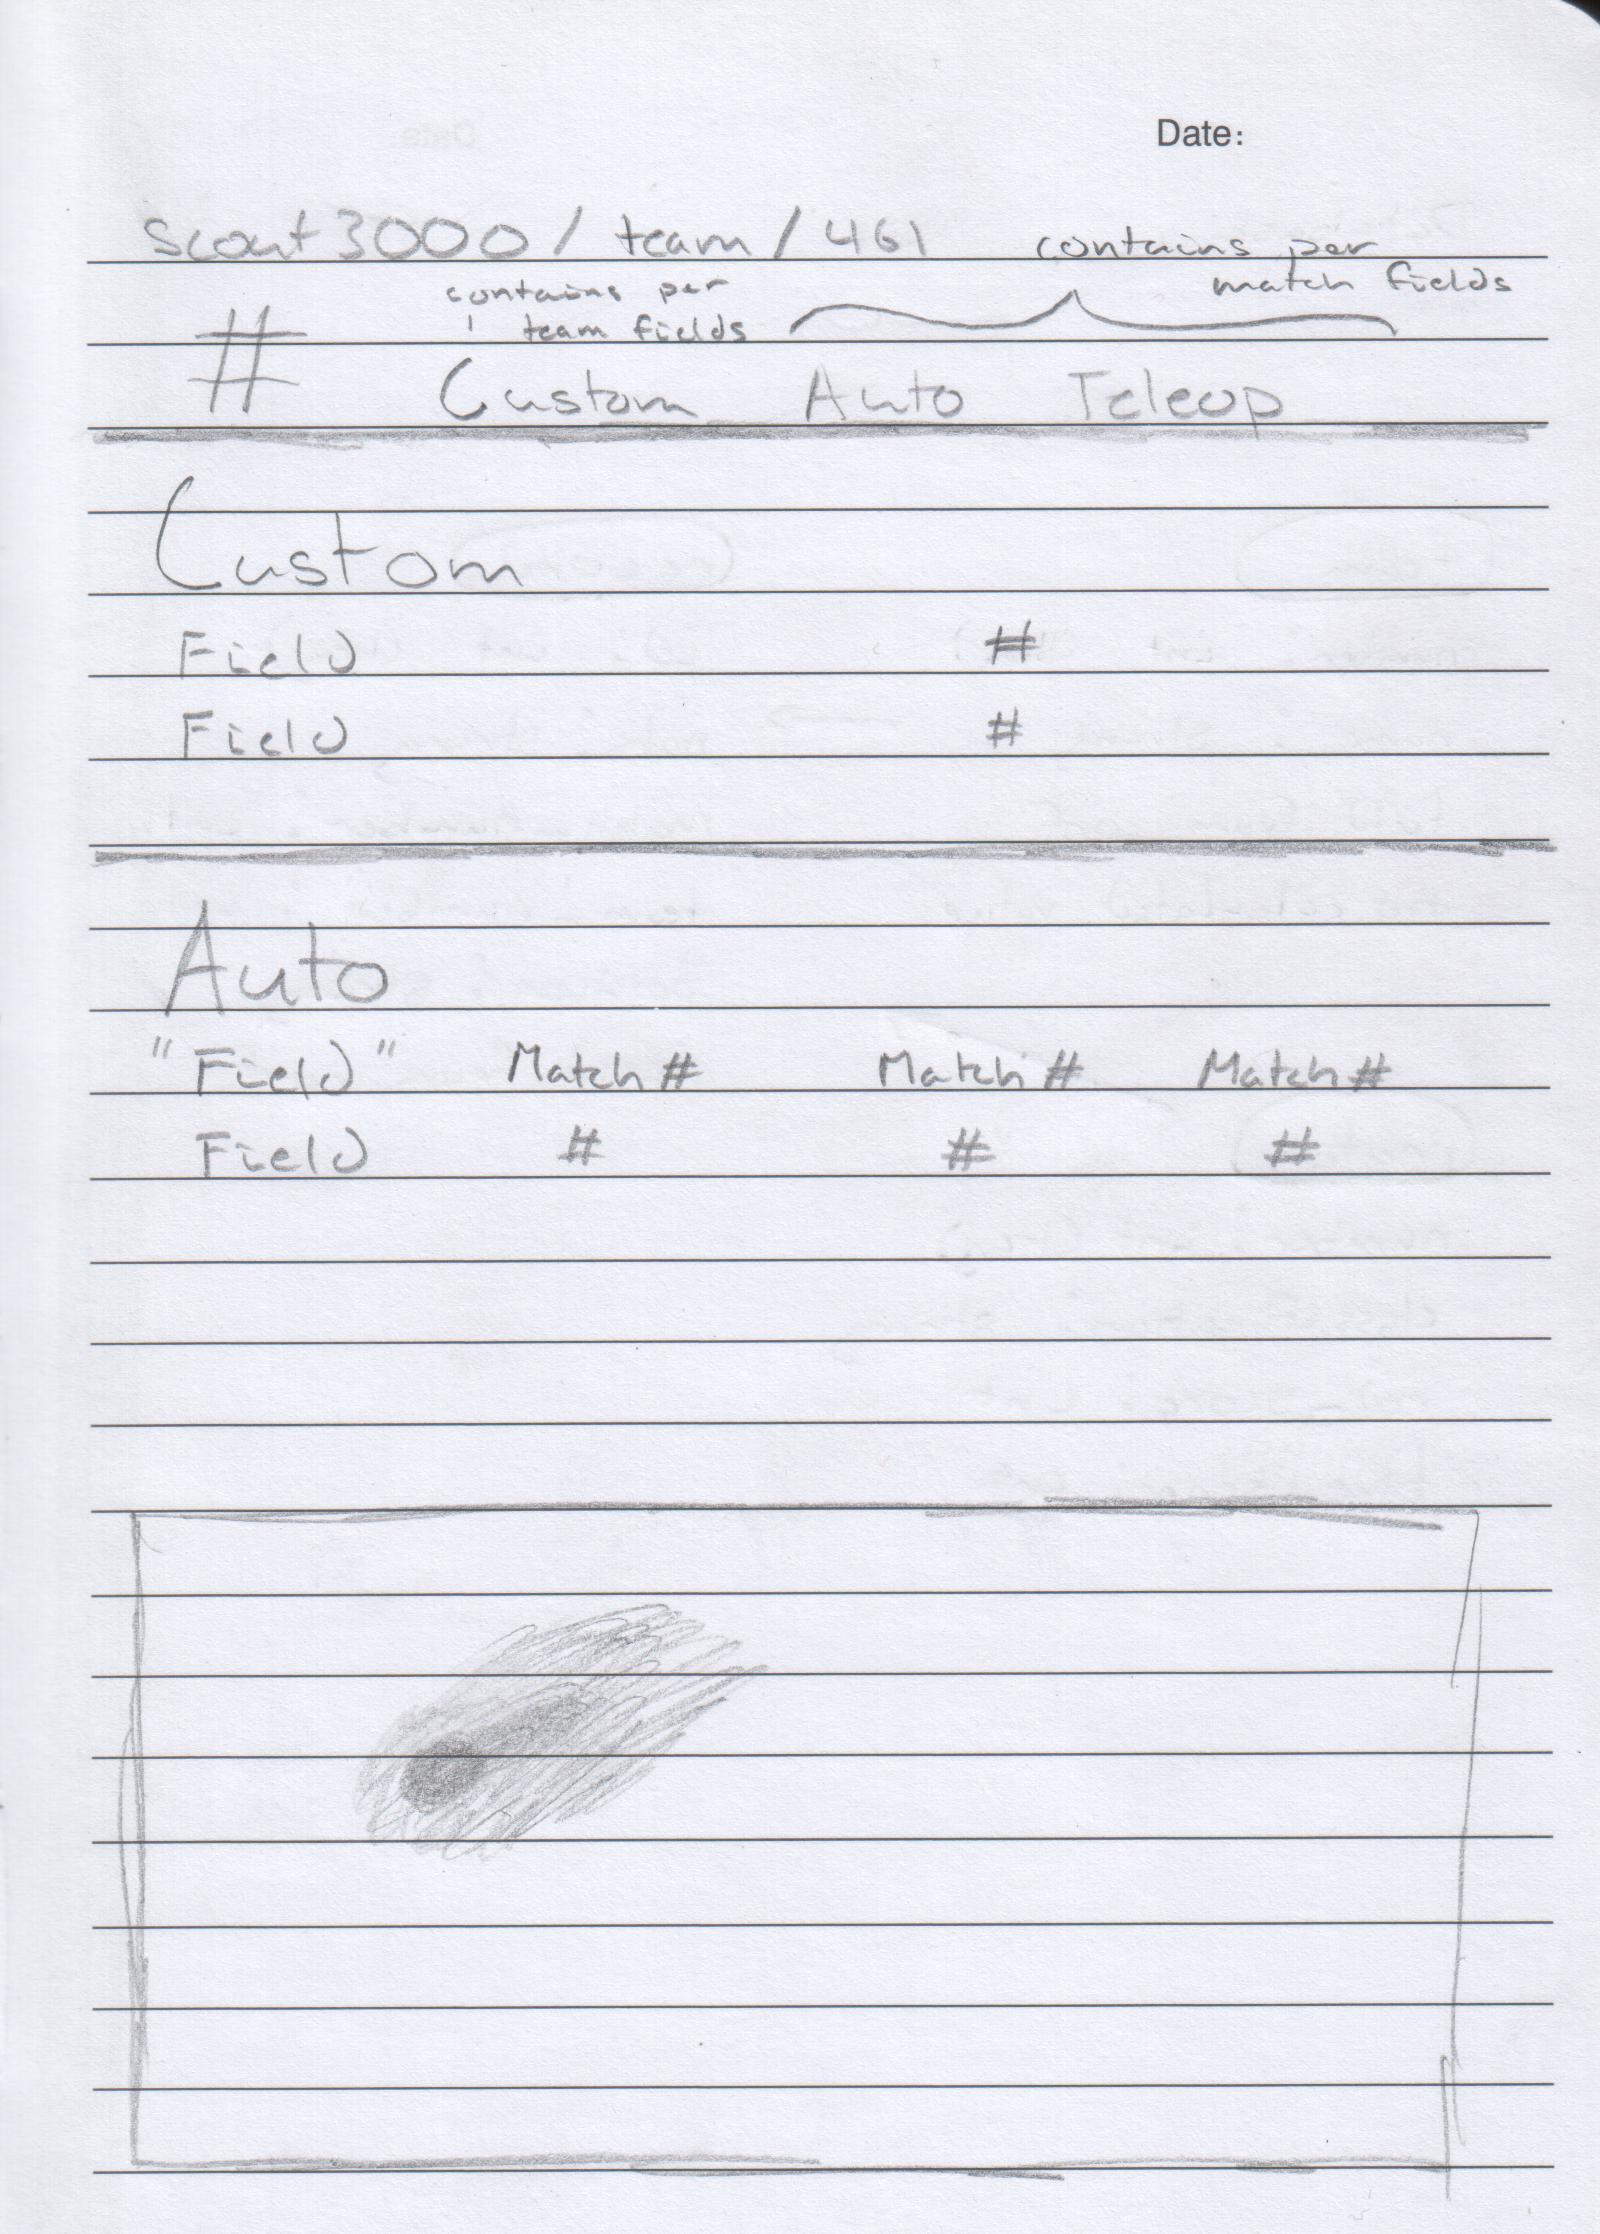 Date:
scout3000 / team / 461
contains per
match fields
contains per
team fields
# Custom Auto Teleop
Custom
Field #
Field #
Auto
"Field" Match # Match # Match #
Field # # #